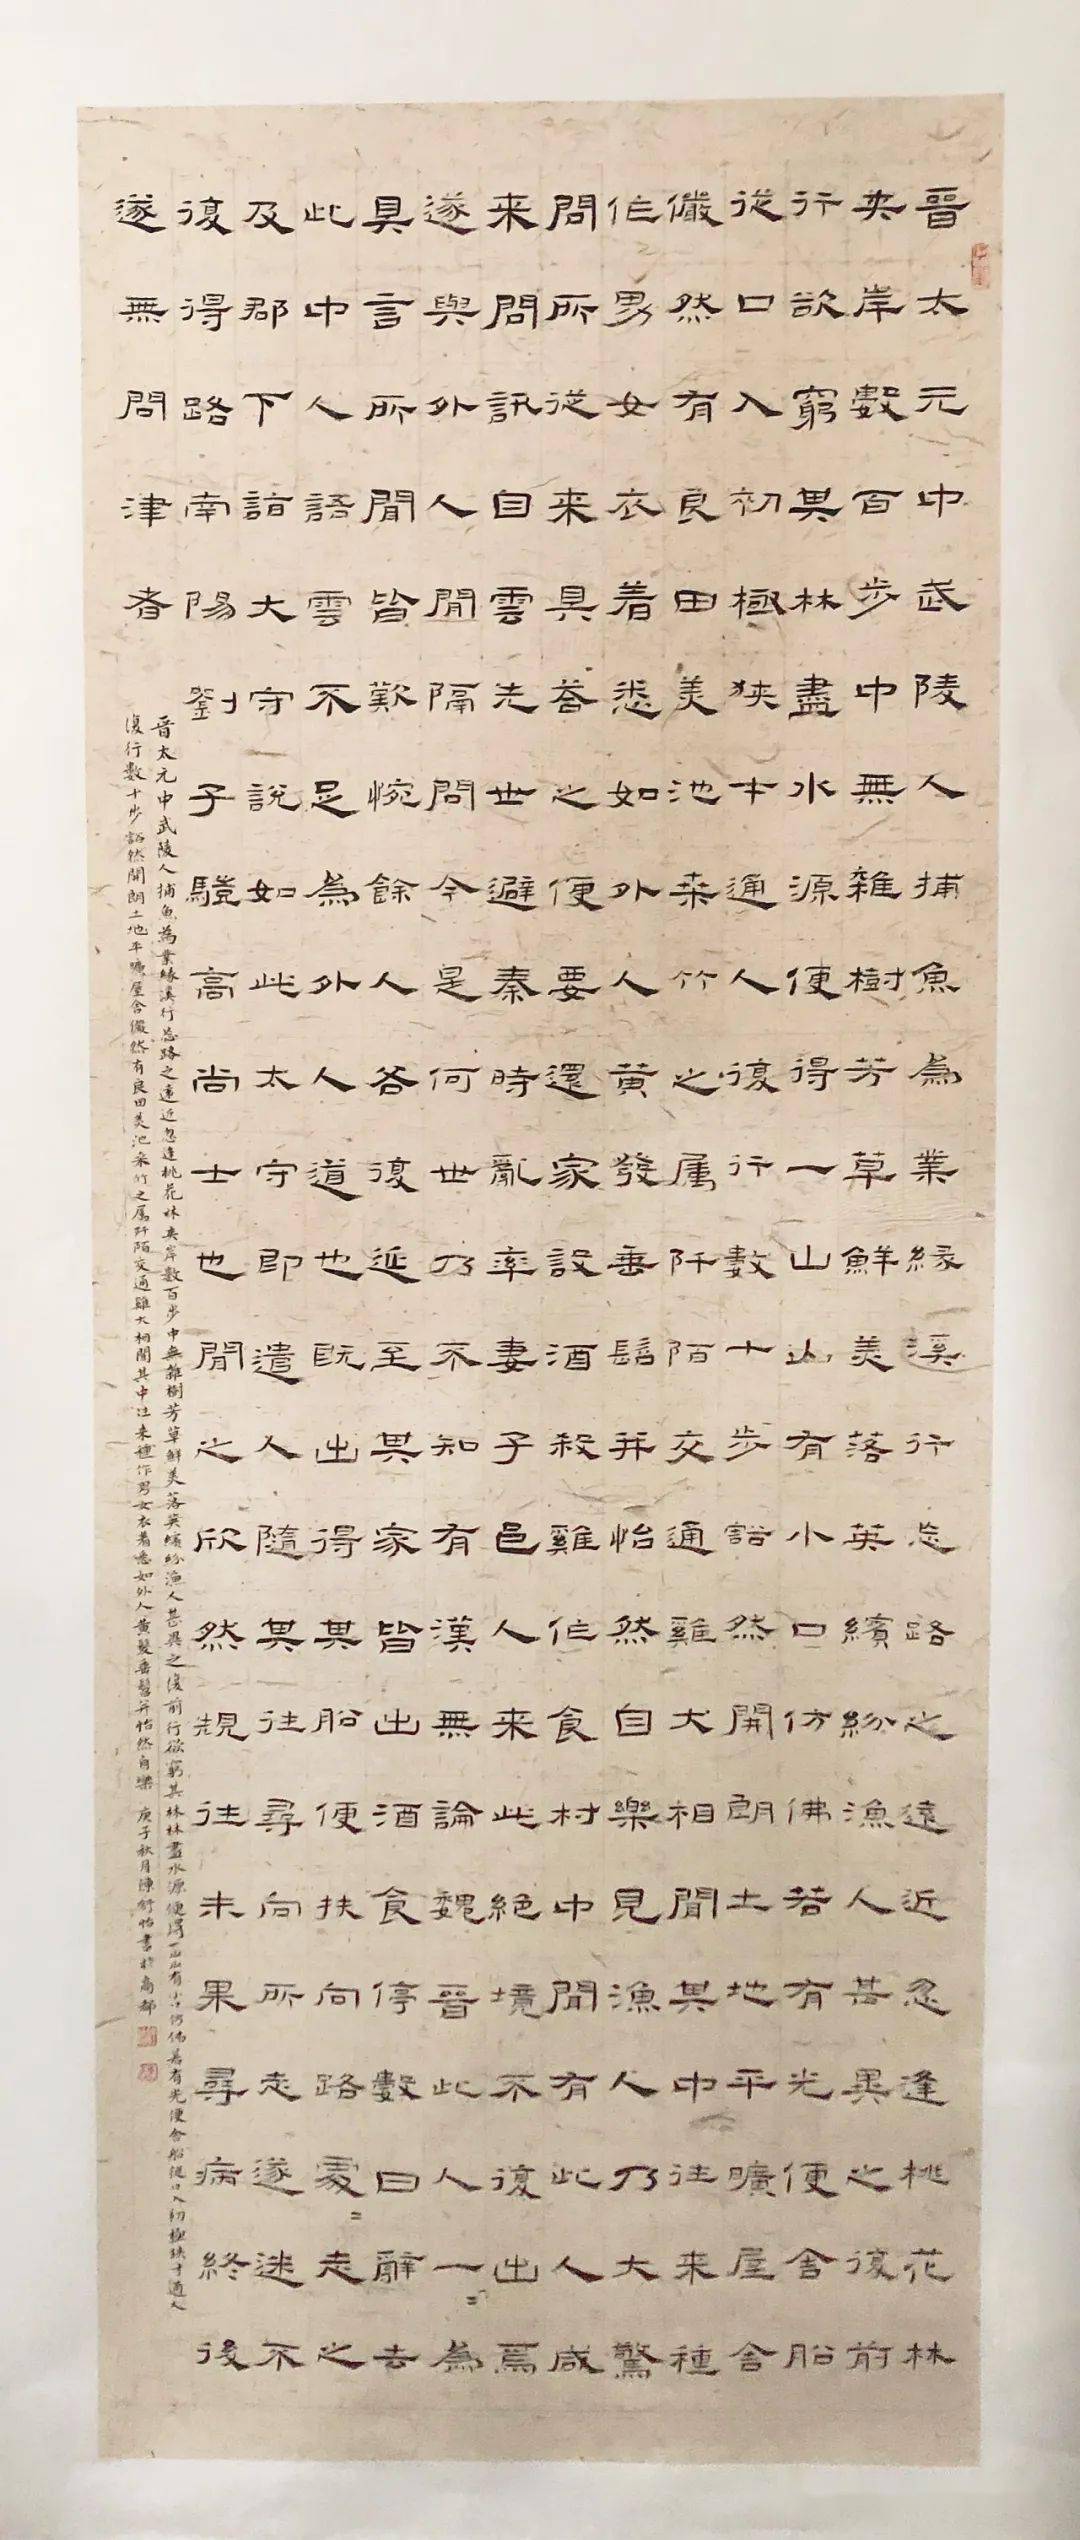 晋太元中武陵人捕魚為業緣溪行忘路之遠近忽逢桃花林
夾岸數百步中無雜樹芳草鮮美落英繽紛漁人甚異之復前
行欲窮其林盡水源便得一山山有小口仿佛若有光便舍船
從口入初極狹才通人復行數十步豁然開朗土地平曠屋舍
儼然有良田美池桑竹之属阡陌交通雞犬相聞其中往来種
作男女衣着悉如外人黄發垂髫并怡然自樂見漁人乃大驚
問所從来具荅之便要還家設酒殺雞作食村中聞有此人咸
来問訊自雲先世避秦時亂率妻子邑人来此絶境不復出焉
遂與外人間隔問今是何世乃不知有漢無論魏晋此人一〻為
具言所聞皆歎惋餘人各復延至其家皆出酒食停數日辭去
此中人語雲不足為外人道也既出得其船便扶向路處〻志之
及郡下詣大守說如此太守即遣人隨其往尋向所志遂迷不
復得路南陽劉子驥高尚士也聞之欣然規往未果尋病終後
遂無問津者
晋太元中武陵人捕魚為業緣溪行忘路之遠近忽逢桃花林夾岸數百步中無雜樹芳草鮮美落英繽紛漁人甚異之復前行欲窮其林林盡水源便得一山山有小口仿佛若有光便舍船從口入初極狹才通人
復行數十步豁然開朗土地平曠屋舍儼然有良田美池桑竹之属阡陌交通雞犬相聞其中往来種作男女衣着悉如外人黄髮垂髫并怡然自樂 庚子秋月陳舒怡書於商都